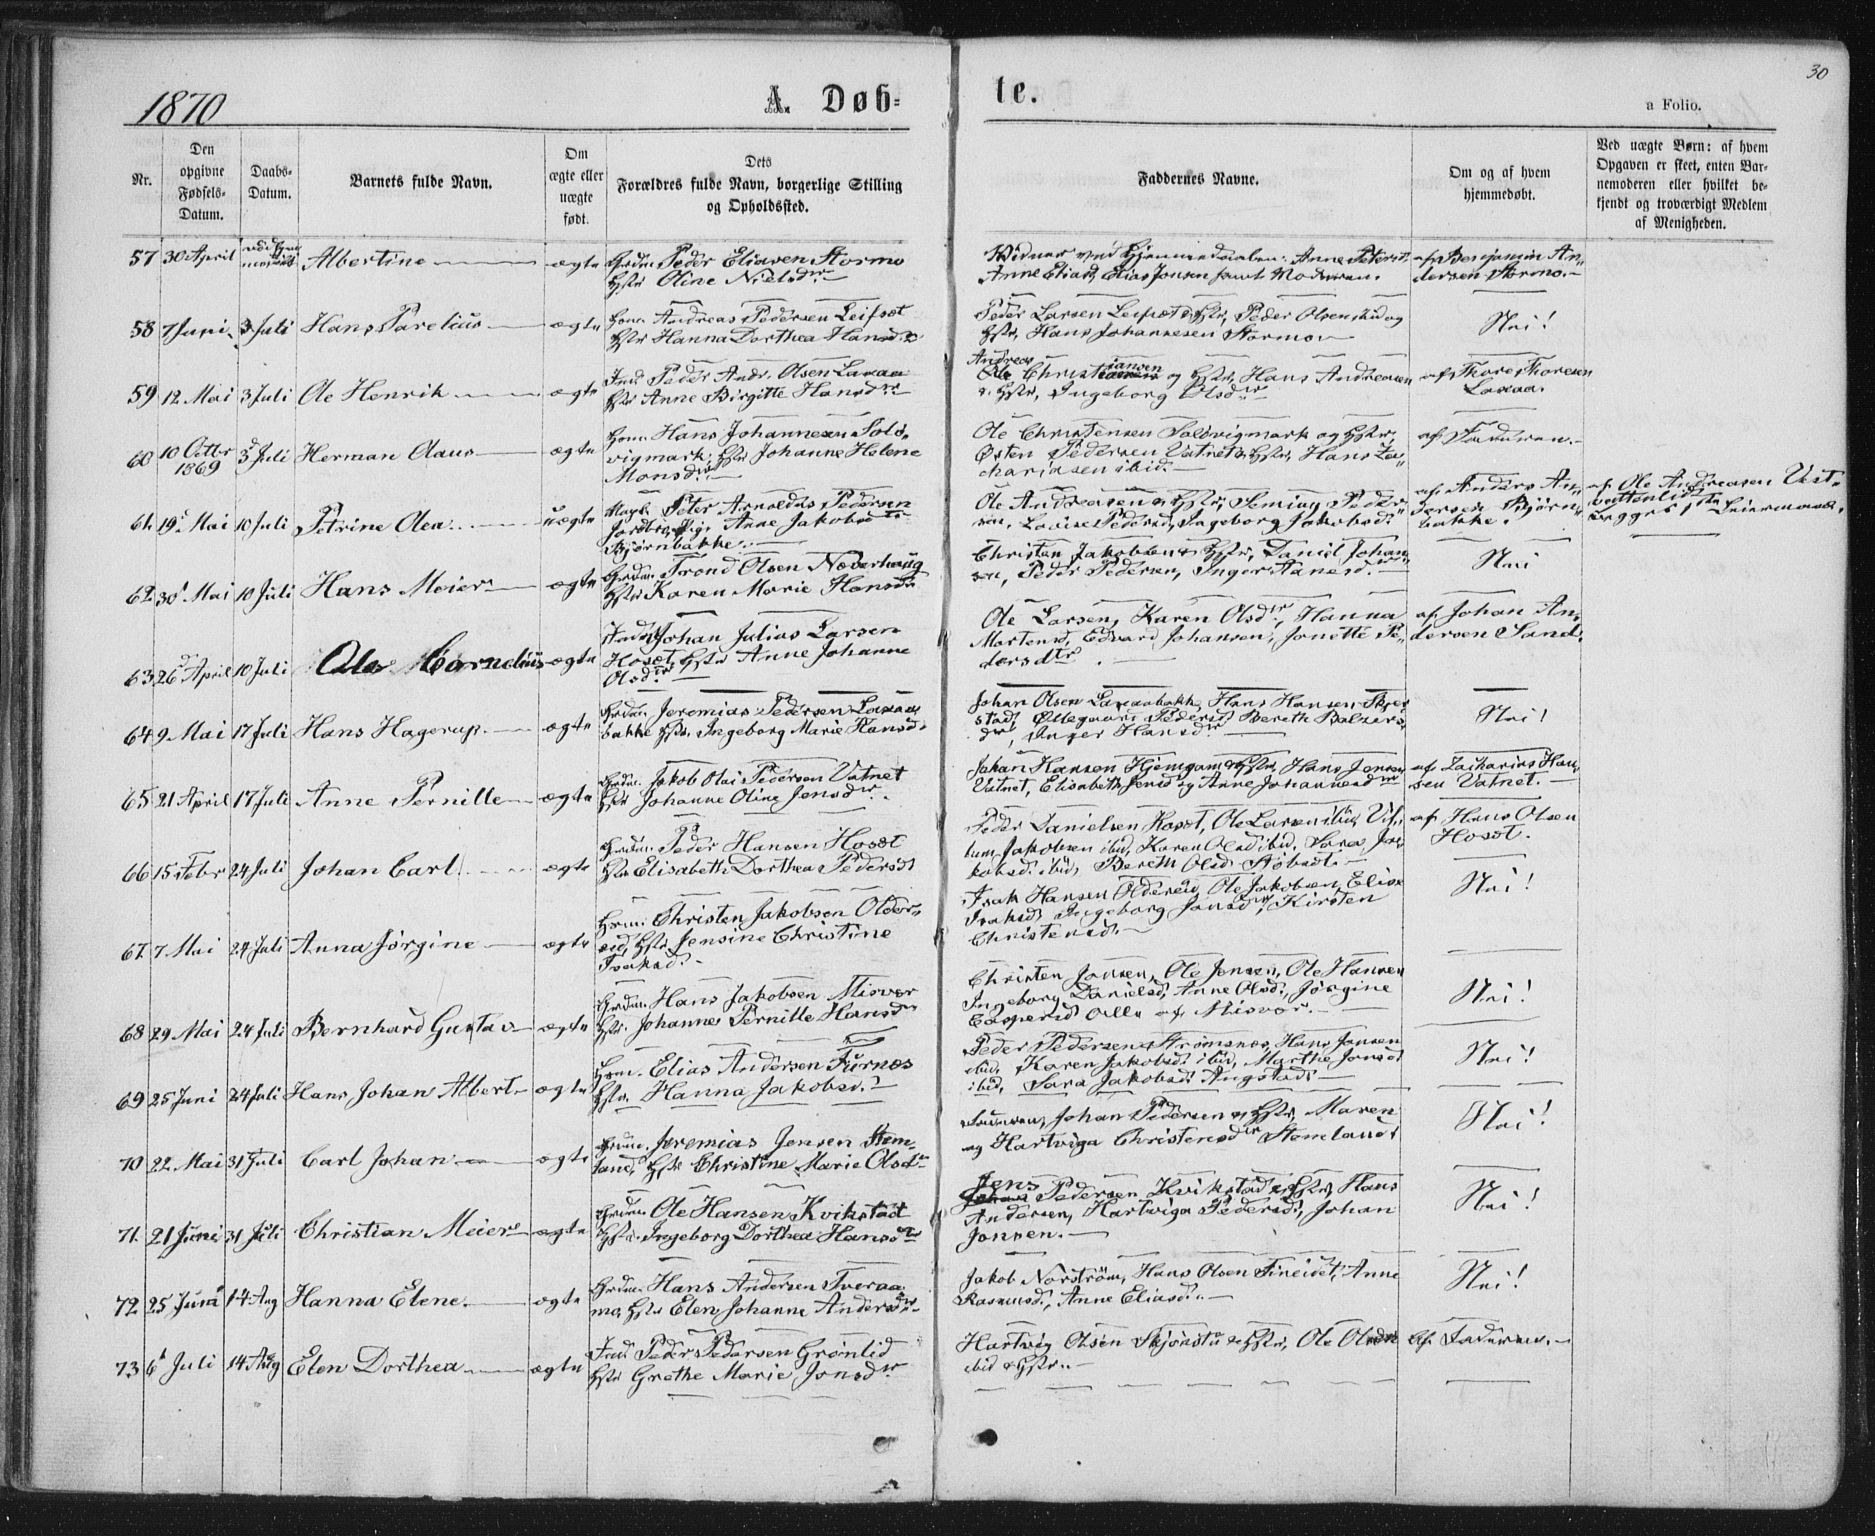 30
1870
A. Døb=
te.
a Folio.
Nr.
Den opgivne Fødsels-Datum.
Daabs-Datum.
Barnets fulde Navn.
Om ægte eller uægte født.
Dets Forældres fulde Navn, borgerlige Stilling og Opholdssted.
Faddernes Navne.
Om og af hvem hjemmedøbt.
Ved uægte Børn: af hvem Opgaven er skeet, enten Barnemoderen eller hvilket bekjendt og troværdigt Medlem af Menigheden.
57 30 April Albertine ægte Peder Eliasen Stormo
Hstr Oline Nielsdr
Vidner ved Hjemmedaaben: Anne Petersd,
Anne Eliasd, Elias Jonsen samt Moderen.
af Benjamin An-
dersen Stormo.
58 7 Juni 3 Juli Hans Parelius ægte Andreas Pedersen Leifset
Hstr Hanna Dorthea Hansd.
Peder Larsen Leifset & Hstr, Peder Olsen ibid og
Hstr, Hans Johannesen Stormo
Nei!
59 12 Mai 3 Juli Ole Henrik ægte Ind Peder Andr. Olsen Laxaa
Hstr Anne Birgitte Hansdr
Andreas
Christiansen og Hstr, Hans Andreasen
& Hstr, Ingeborg Olsdr
af Thore Thoresen
Laxaa.
60 10 Octbr 1869 3 Juli Herman Olaus ægte Hans Johannesen Solv-
vigmark, Hstr Johanne Helene
Monsdr
Ole Christensen Solvvigmark og Hstr,
Østen Pedersen Vatnet & Hstr, Hans Za-
chariasen ibid.
af Faderen.
61 19 Mai 10 Juli Petrine Olea uægte Peter Arnoldus Pedersen
Pige Anne Jakobsdr
Bjørnbakke
Ole Andreasen & Hstr, Seming Peder-
sen, Lovise Pedersd, Ingeborg Jakobsd.
af Anders An-
dersen Bjørn-
bakke.
af Ole Andreasen Vest-
vattenlid
62 30 Mai 10 Juli Hans Meier ægte Trond Olsen Næverhaug
Hstr Karen Marie Hansd
Christen Jakobsen & Hstr, Daniel Johan-
sen, Peder Pedersen, Inger Hansd.
Nei
63 26 April 10 Juli Ole Cornelius ægte Johan Julius Larsen
Hoset, Hstr Anne Johanne
Olsdr
Ole Larsen, Karen Olsdr, Hanna
Mortensd, Edvard Johansen, Jonette Pe-
dersdtr
af Johan An-
dersen Sand.
64 9 Mai 17 Juli Hans Hagerup ægte Jeremias Pedersen Laxaa-
bakke Hstr. Ingeborg Marie Hansd.
Johan Olsen Laxaabakk, Hans Hansen Skjer-
stad, Ollegaard Pedersd, Bereth Balzers-
dr, Inger Hansdr
Nei!
65 21 April 17 Juli Anne Pernille ægte Jakob Olai Pedersen Vatnet
Hstr Johanne Oline Jensdr.
Johan Hansen Hjemgam & Hstr, Hans Jensen
Vatnet, Elisabeth Jensd og Anne Johannesdr
af Zacharias Han-
sen Vatnet.
66 15 Febr 24 Juli Johan Carl ægte Peder Hansen Hosøt
Hstr Elisabeth Dorthea Pedersd
Peder Danielsen Hosøt, Ole Larsen ibid,
Jakobsen ibid, Karen Olsd ibid, Sara Ja-
kobsd. ibid, Bereth Olsd
af Hans Olsen
Hosøt.
67 7 Mai 24 Juli Anna Jørgine ægte Christen Jakobsen Older-
eid, Hstr Jensine Christine
Isaksd.
Isak Hansen Oldereid, Ole Jakobsen, Elise
Isaksd, Ingeborg Jonsdr, Kirsten
Christensd.
Nei!
68 29 Mai 24 Juli Bernhard Gustav ægte Hans Jakobsen Misvær
Hstr. Johanne Pernille Hansdr
Christen Jonsen, Ole Jensen, Ole Hansen
Ingeborg Danielsd, Anne Olsd., Jørgine
Caspersd Alle af Misvør.
Nei!
69 25 Juni 24 Juli Hans Johan Albert ægte Elias Andersen Furnæs
Hstr. Hanna Jakobsd.
Peder Pedersen Strømsnæs, Hans Jonsen
ibid, Karen Jakobsd. ibid, Marthe Jonsd
ibid, Sara Jakobsd. Augstad
Nei!
70 22 Mai 31 Juli Carl Johan ægte Jeremias Jensen Stem-
land, Hstr Christine Marie Olsd
Johan Pedersen & Hstr, Maren
og Hartviga Christensdr Stemland
Nei!
71. 21 Juni 31 Juli Christian Meier ægte Ole Hansen Kvikstad
Hstr. Ingeborg Dorthea Hansdr
Jens
Pedersen Kvikstad & Hstr, Hans
Andersen, Hartviga Pedersd, Johan
Jonsen.
Nei!
72 25 Juni 14 Aug Hanna Elene ægte Hans Andersen Tveraa-
mo, Hstr Elen Johanne Andersdr
Jakob Norström, Hans Olsen Fineidet, Anne
Rasmusd., Anne Eliasd.
Nei!
73 6 Juli 14 Aug Elen Dorthea ægte Ind Peder Pedersen Grønlid
Hstr Grethe Marie Jonsdr
Hartvig Olsen Skjønstu & Hstr, Ole Olsen
ibid & Hstr.
af Faderen.